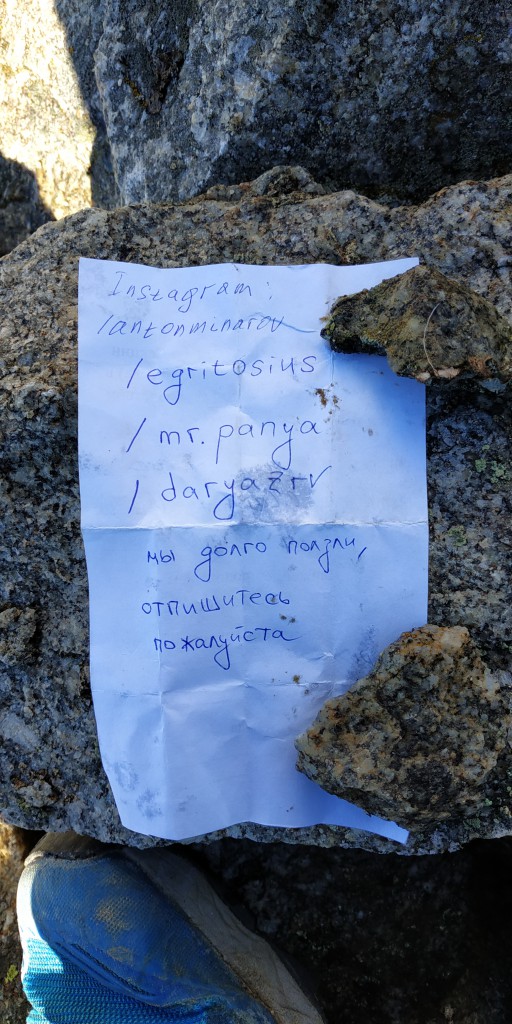 Instagram:
/antonminarov
/egritosius
/mr.panya
/daryazrv
мы долго ползли,
отпишитесь
пожалуйста